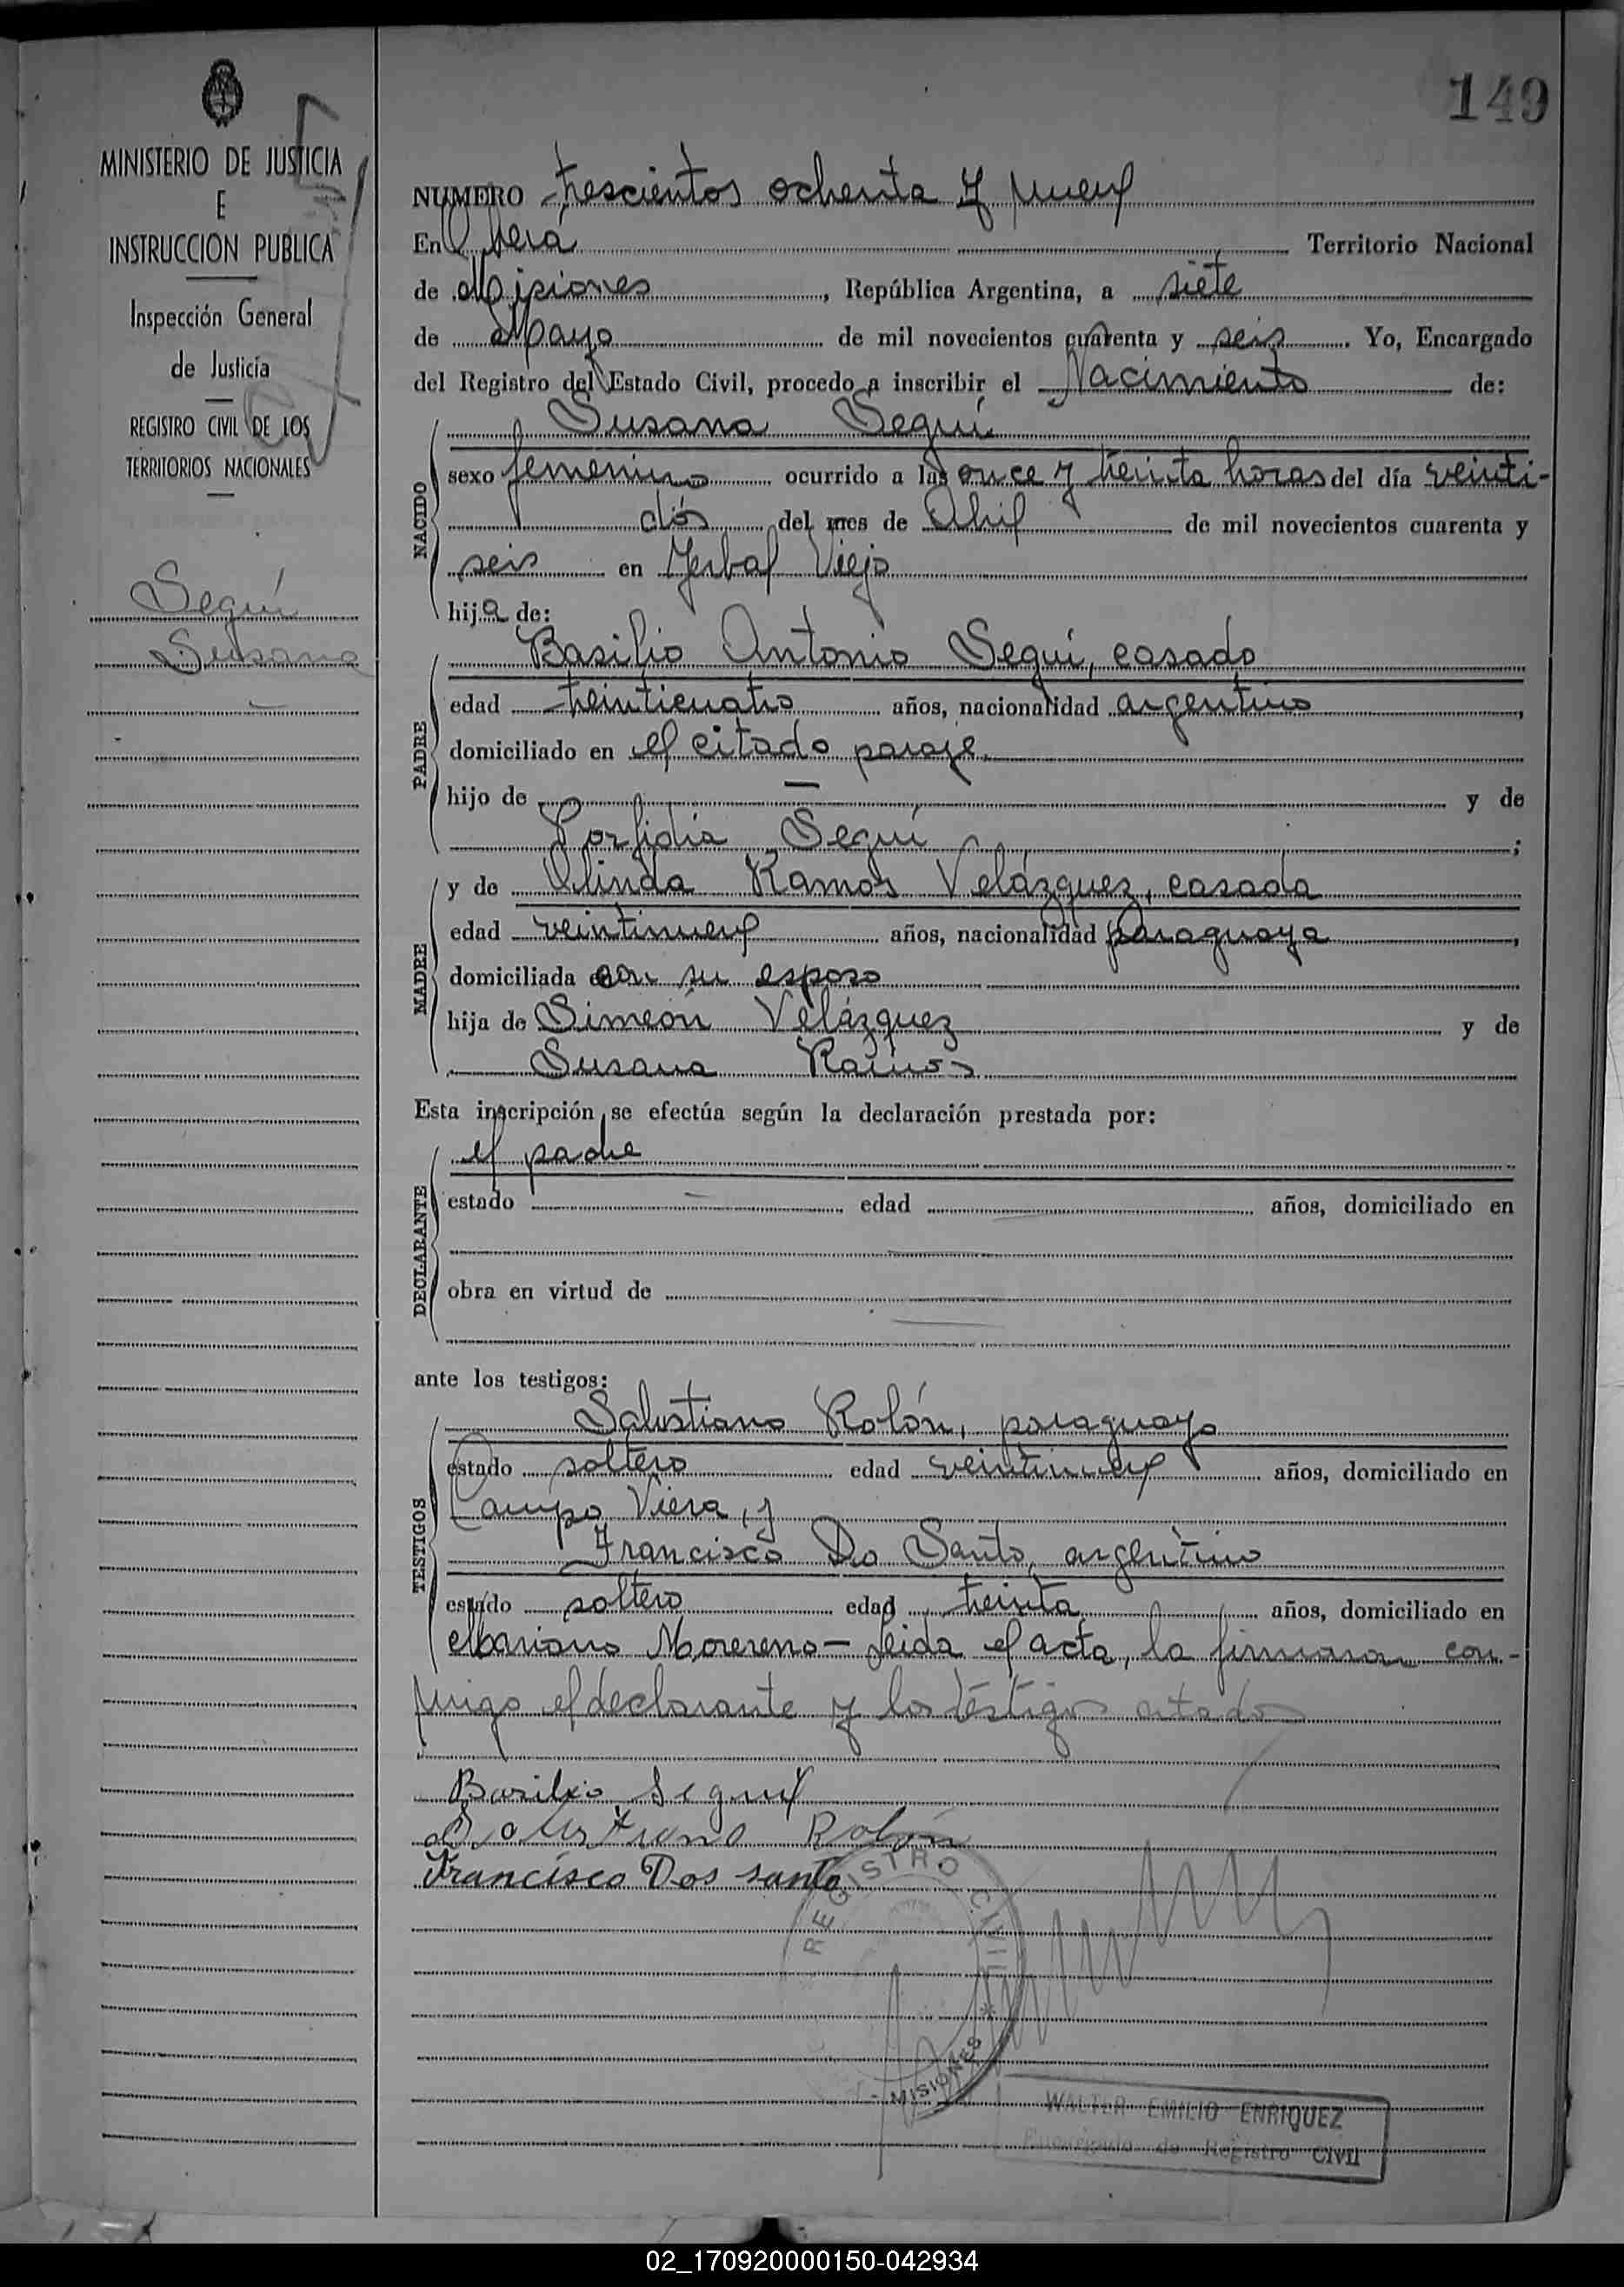 149
MINISTERIO DE JUSTICIA
E
INSTRUCCION PUBLICA
Inspección General
de Justicia
REGISTRO CIVIL DE LOS
TERRITORIOS NACIONALES
Seguí
Susana
NUMERO trescientos ochenta y nueve
En Oberá Territorio Nacional
de Misiones, República Argentina, a siete
de Mayo de mil novecientos cuarenta y seis. Yo, Encargado
del Registro del Estado Civil, procedo a inscribir el Nacimiento de:
Susana Seguí
NACIDO
sexo femenino ocurrido a las once y treinta horas del día veinti-
dós del mes de Abril de mil novecientos cuarenta y
seis en Yerbal Viejo
hija de:
Basilio Antonio Seguí, casado
PADRE
edad treinticuatro años, nacionalidad argentino,
domiciliado en el citado paraje.
hijo de — y de
Porfidia Seguí;
y de Olinda Ramos Velázquez, casada
MADRE
edad veintinueve años, nacionalidad paraguaya,
domiciliada con su esposo
hija de Simeón Velázquez y de
Susana Ramos
Esta inscripción se efectúa según la declaración prestada por:
el padre
DECLARANTE
estado — edad — años, domiciliado en
obra en virtud de
ante los testigos:
Salustiano Rolón, paraguayo
TESTIGOS
estado soltero edad veintinueve años, domiciliado en
Campo Viera, y
Francisco Do Santo, argentino
estado soltero edad treinta años, domiciliado en
Mariano Morereno — Leida el acta, la firmaron con-
migo el declarante y los téstigos citados
Basilio Segui
Salustiano Rolón
Francisco Dos santo
REGISTRO CIVIL * MISIONES
WALTER EMILIO ENRIQUEZ
Encargado de Registro Civil
02_170920000150-042934